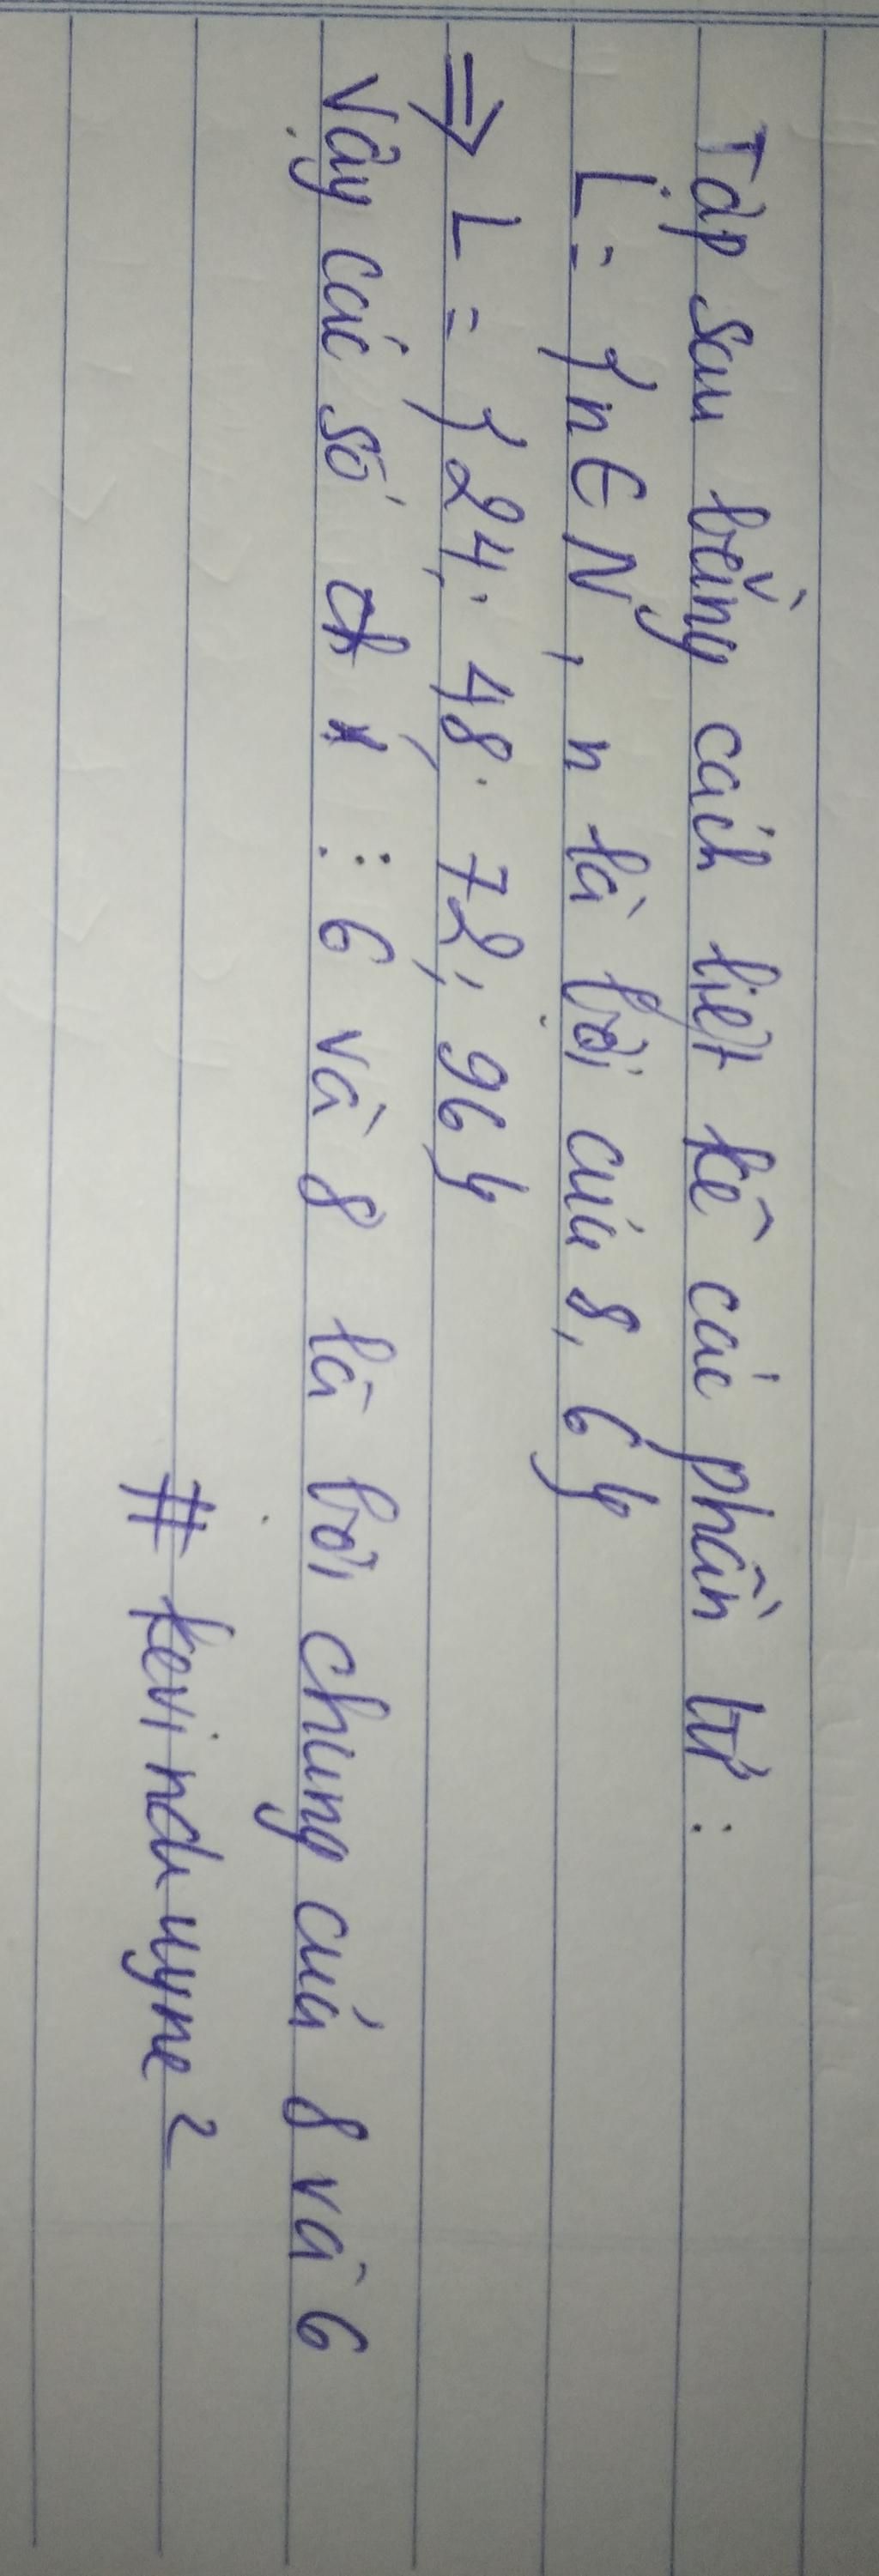 Tập sau bằng cách liệt kê các phần tử :
L = { n ∈ N, n là bội của 8, 6 }
⇒ L = { 24; 48; 72; 96 }
Vậy các số ⋮ 6 và 8 là bội chung của 8 và 6
# kevinduyne²